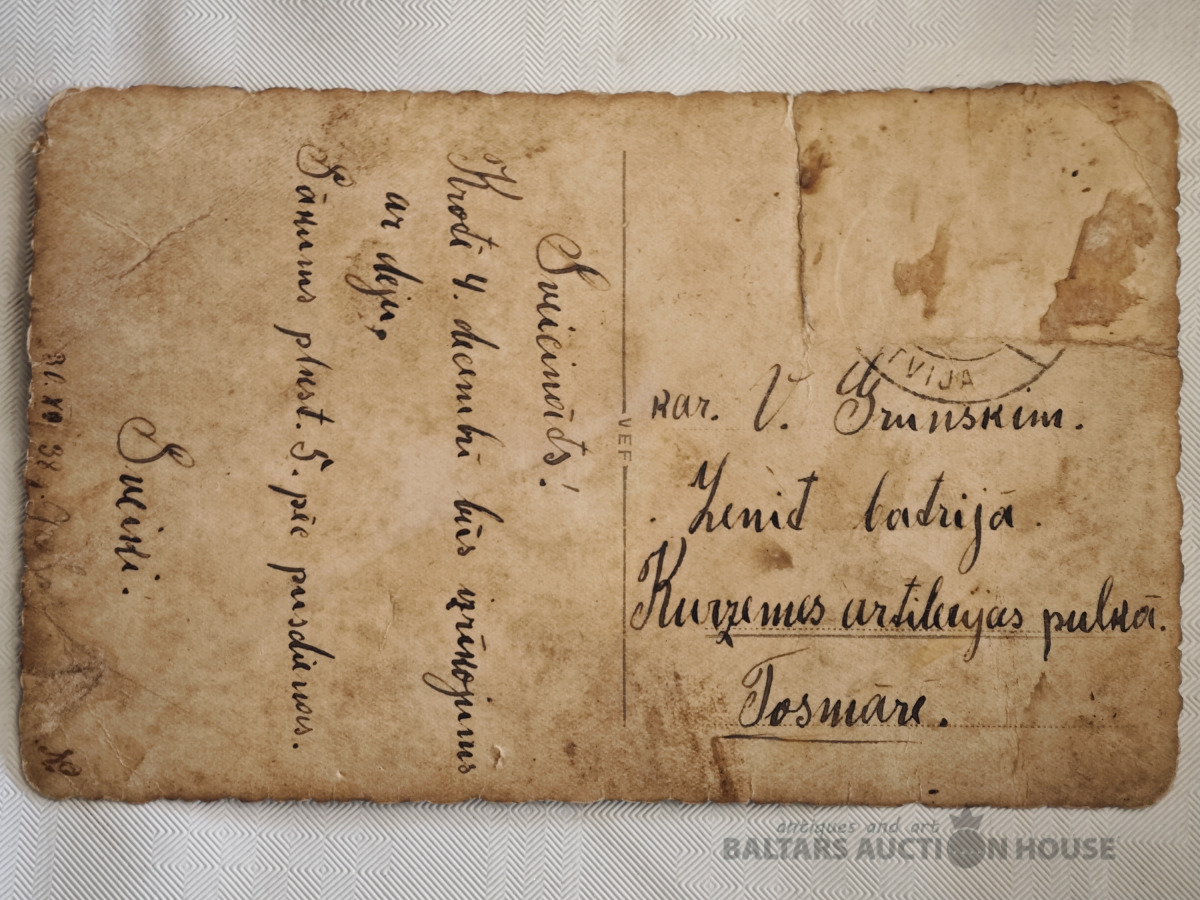 Sveicināts!
Krotē 4. decembrī būs izrīkojums
ar deju,
Sākums plkst. 5. pēc pusdienas.
Sveiki.
VEF
LATVIJA
kar. V. Grunskim.
Zenit batrijā.
Kurzemes artilerijas pulkā.
Tosmārē.
antiques and art
BALTARS AUCTION HOUSE